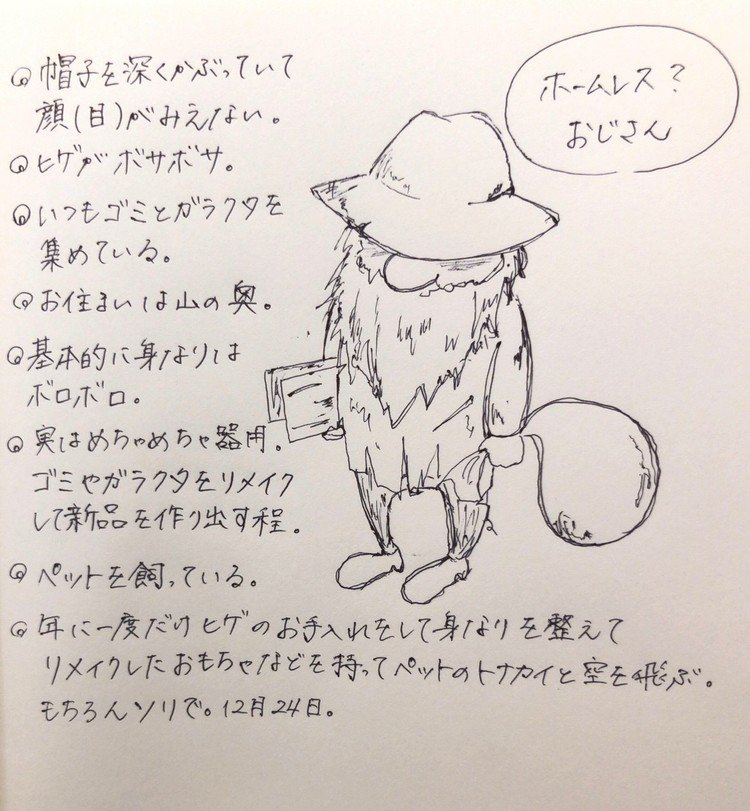 ホームレス?
おじさん
帽子を深くかぶっていて
顔(目)がみえない。
ヒゲがボサボサ。
いつもゴミとガラクタを
集めている。
お住まいは山の奥。
基本的に身なりは
ボロボロ。
実はめちゃめちゃ器用。
ゴミやガラクタをリメイク
して新品を作り出す程。
ペットを飼っている。
年に一度だけヒゲのお手入れをして身なりを整えて
リメイクしたおもちゃなどを持ってペットのトナカイと空を飛ぶ。
もちろんソリで。12月24日。